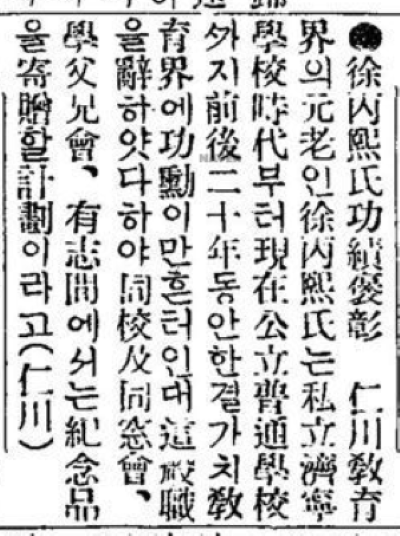 ●徐丙熙氏功績褒彰 仁川敎育
界의元老인徐丙熙氏는私立濟寧
學校時代부터現在公立普通學校
ᄭᅡ지前後二十年동안한결가치敎
育界에功勳이만흔터인대這般職
을辭하얏다하야同校及同窓會、
學父兄會、有志間에서는紀念品
을寄贈할計劃이라고(仁川)